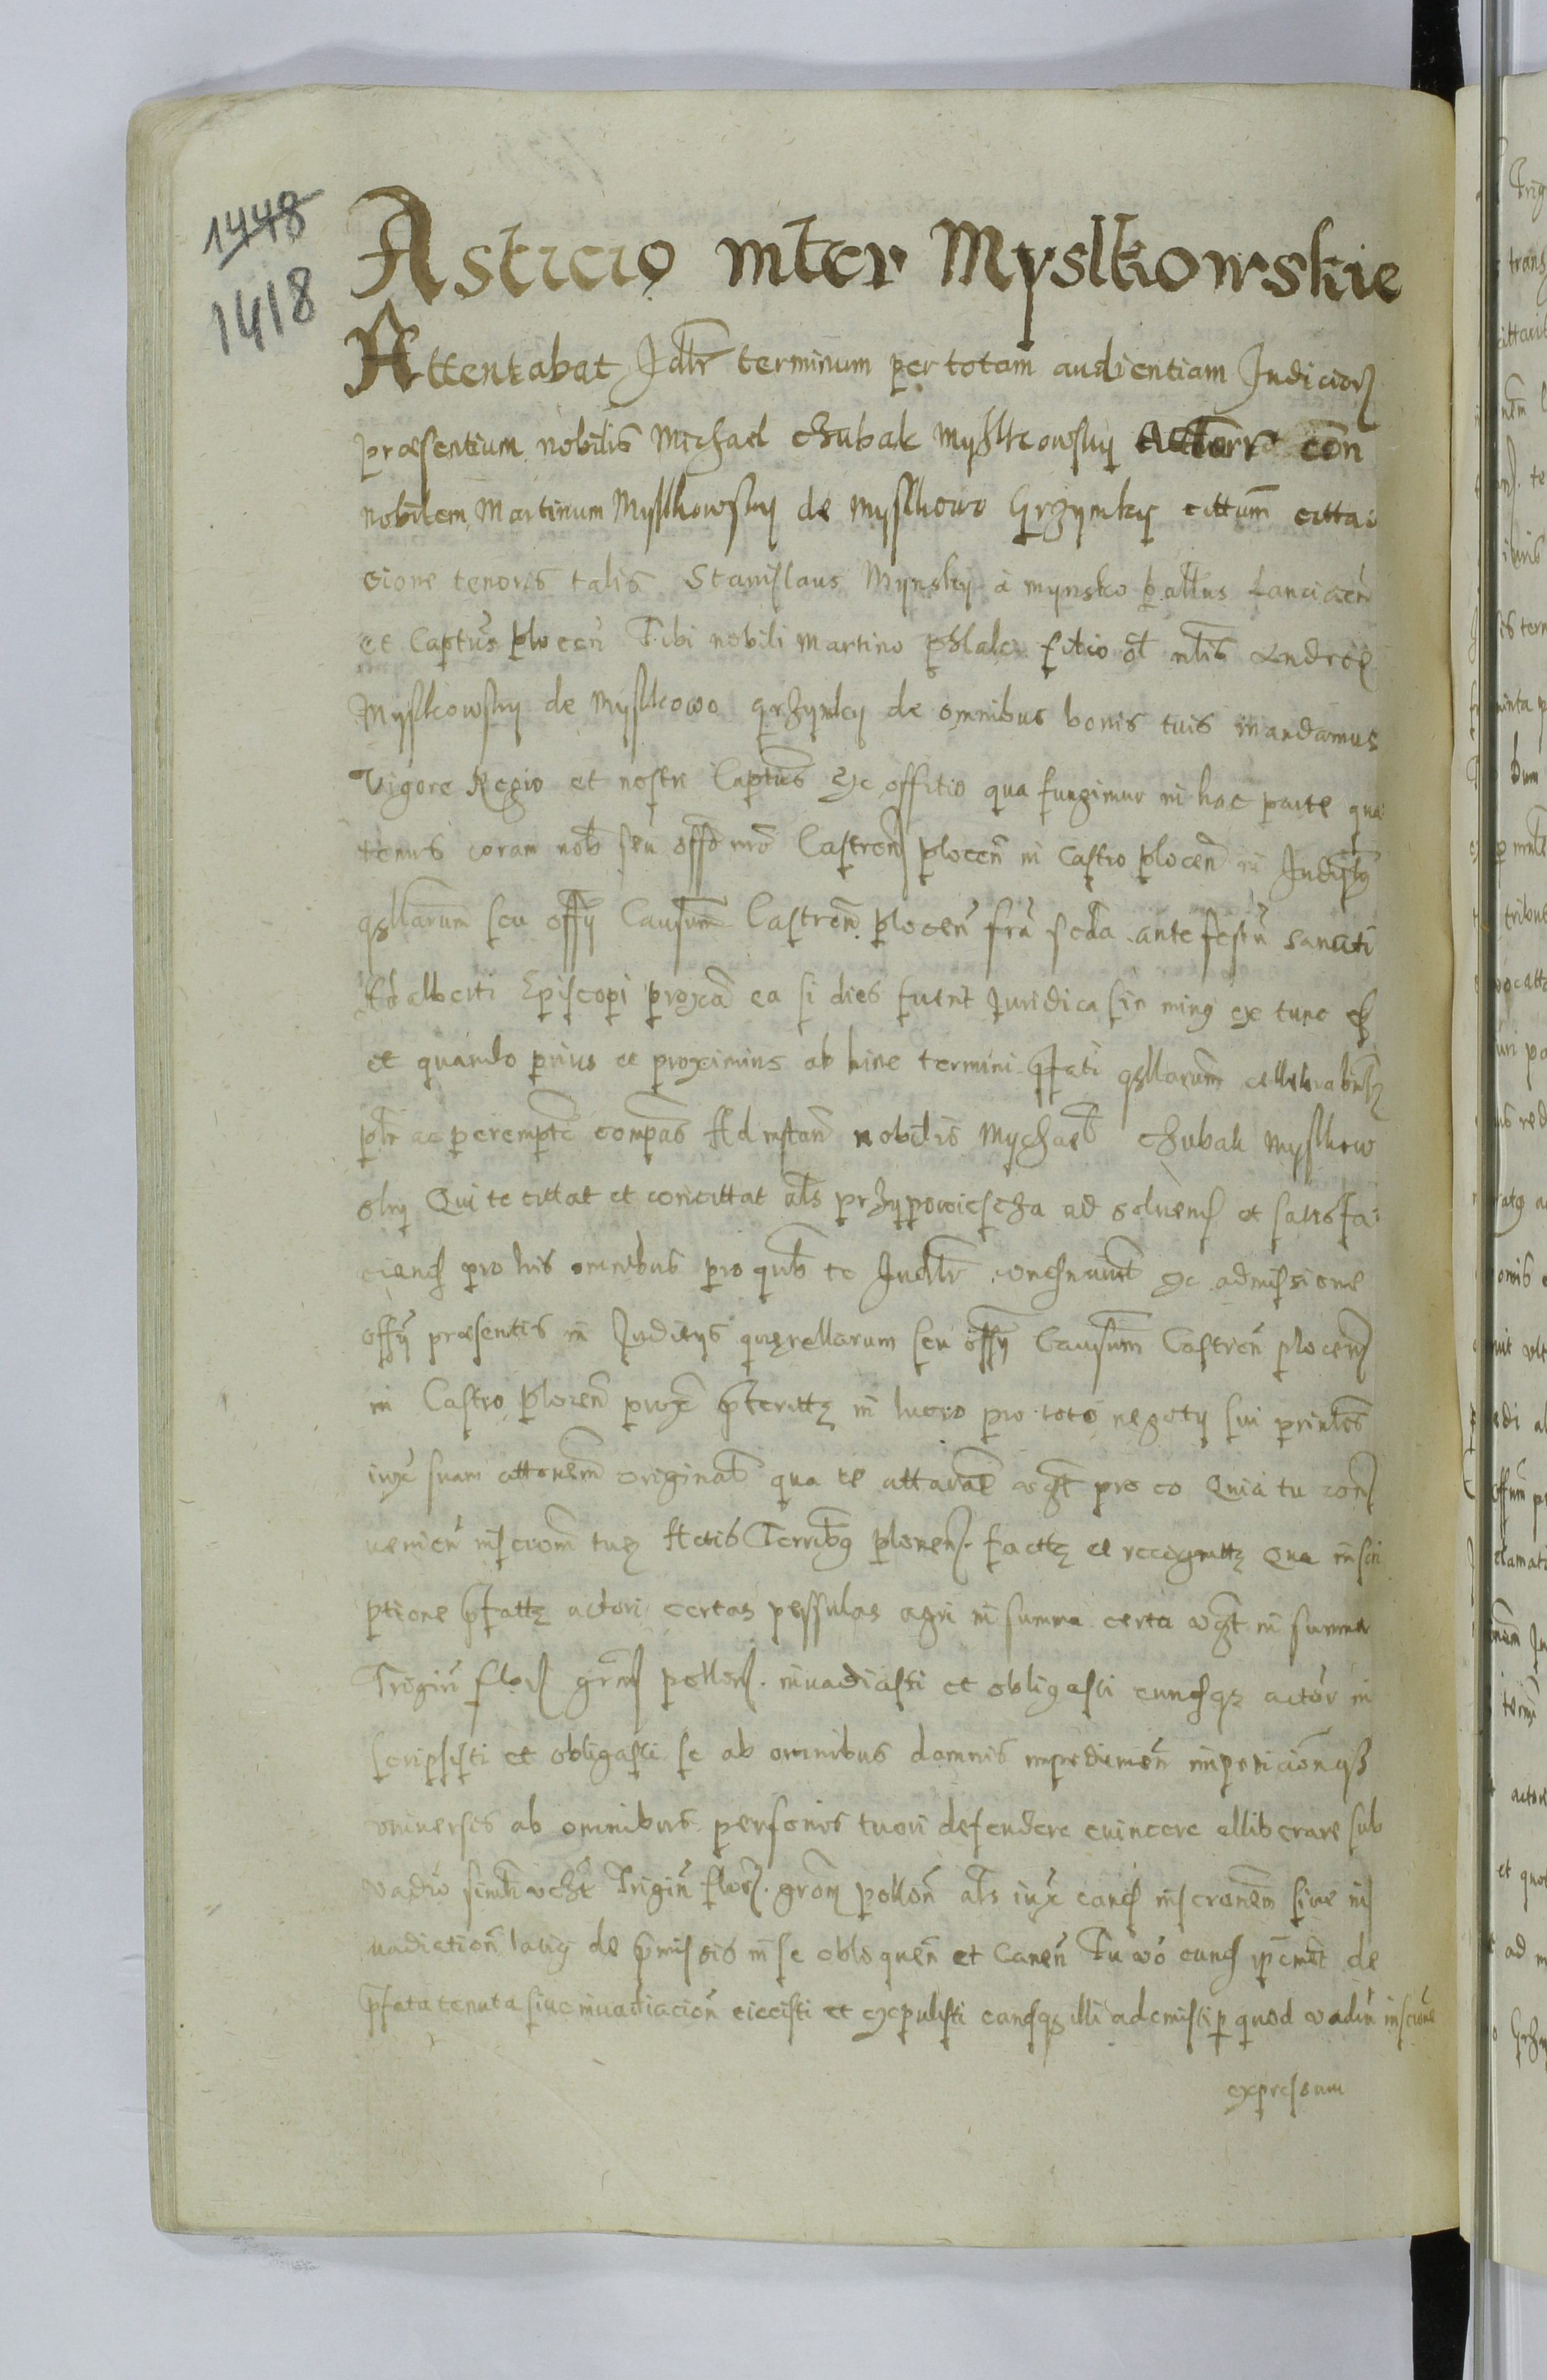 1448
1418
Asticio inter Myslkowskie
Attentabat Jdtr terminum per totam audientiam Judicior
præsentium nobilis Michael Chubak Myslkowsky Actorr con
nobilem Martinum Myslkowsky de Myslkowo Grzymky cittum citta
cione tenoris talis Stanislaus Mynsky a mynsko pallus Lanciacen
et Captus plocen Tibi nobili Martino filio nlis Andree
Myslkowsky de Myslkowo grzymky de omnibus bonis tuis mandamus
Vigore Regio et nostri Captus ex offitio qua fungimur in hac parte qua
tenus coram nob seu offo nro Castren plocen in Castro plocen in
qrllarum seu offy Causum Castren plocen fra scda ante festu sancti
Adalberti Episcopi proxa ea si dies fuerit Juridica sin ming ex tunc
et quando prius et proximius ab hinc termini pfati qrllarum cellebrabnt
pltr ac perempte compas Ad instan nobilis Mychael Chubak Myslkow
sky Qui te cittat et concittat als przypowiescza ad solvend et satisfa
ciend pro his omnibus pro qub te Judltr ex admissione
offy præsentis in Judicys querellarum seu offy Causum Castren plocen
in Castro plocen prox pteritt in lucro pro toto negoty sui prinles
iux suam attonem original qua te attavat vght pro eo Quia tu con
venien inscrom tue Actis Terribg plocen. factt et recognitt Qua inscri
ptione pfatt actori certas pessulas agri in summa certa vght in summa
Trigin flor grm pollon. invadiasti et obligasti eundqz actor in
scripsisti et obligasti se ab omnibus damnis impedimen impeticionqz
vniversis ab omnibus personis tueri defendere evincere elliberare sub
vadio simli vght Trigin flor. grom pollon als iux eand inscronem sive in
vadiation latig de pmissis in se obloquen et Canen Tu vo eund de
pfata tenuta sive invadiacion eiecisti et expulisti eandqz illi ademisti p quod vadiu inscrone
expressum